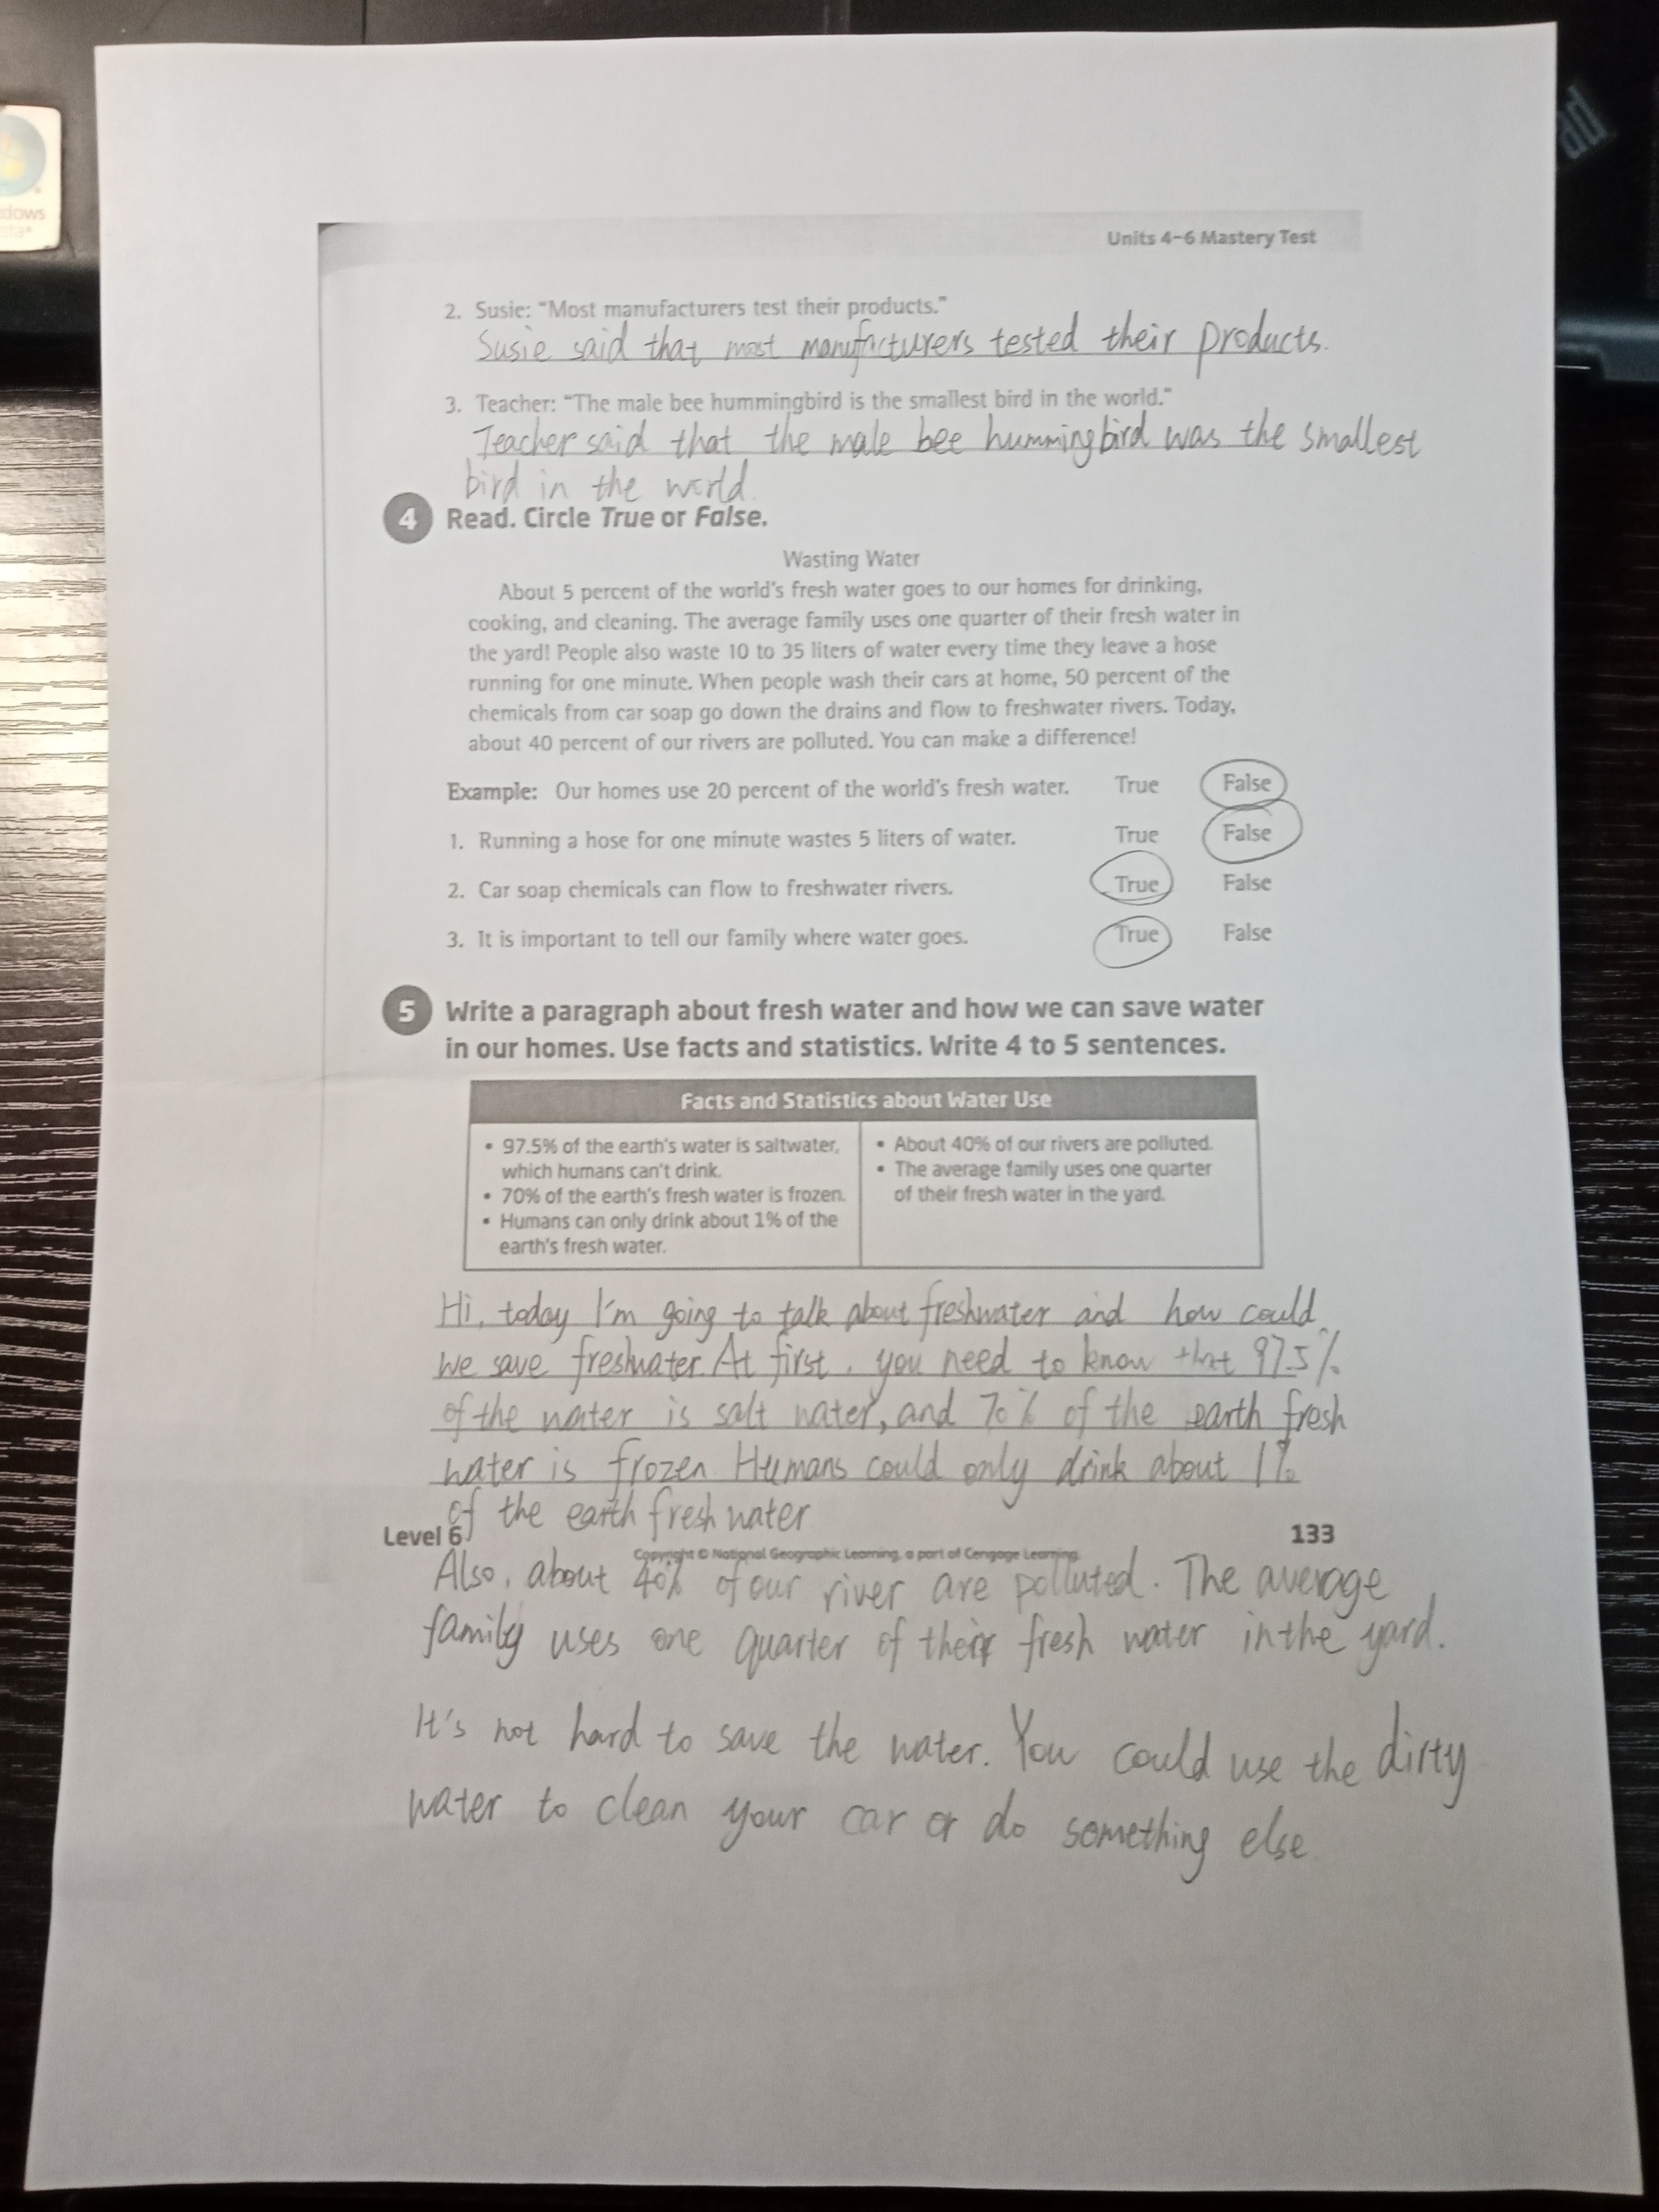 Units 4–6 Mastery Test
2. Susie: "Most manufacturers test their products."
Susie said that most manufacturers tested their products.
3. Teacher: "The male bee hummingbird is the smallest bird in the world."
Teacher said that the male bee hummingbird was the smallest
bird in the world.
4 Read. Circle True or False.
Wasting Water
About 5 percent of the world's fresh water goes to our homes for drinking,
cooking, and cleaning. The average family uses one quarter of their fresh water in
the yard! People also waste 10 to 35 liters of water every time they leave a hose
running for one minute. When people wash their cars at home, 50 percent of the
chemicals from car soap go down the drains and flow to freshwater rivers. Today,
about 40 percent of our rivers are polluted. You can make a difference!
Example: Our homes use 20 percent of the world's fresh water. True False
1. Running a hose for one minute wastes 5 liters of water. True False
2. Car soap chemicals can flow to freshwater rivers. True False
3. It is important to tell our family where water goes. True False
5 Write a paragraph about fresh water and how we can save water
in our homes. Use facts and statistics. Write 4 to 5 sentences.
Facts and Statistics about Water Use
• 97.5% of the earth's water is saltwater,
which humans can't drink.
• 70% of the earth's fresh water is frozen.
• Humans can only drink about 1% of the
earth's fresh water.
• About 40% of our rivers are polluted.
• The average family uses one quarter
of their fresh water in the yard.
Hi, today I'm going to talk about freshwater and how could
we save freshwater. At first, you need to know that 97.5%
of the water is salt water, and 70% of the earth fresh
water is frozen. Humans could only drink about 1%
of the earth fresh water
Level 6 133
Copyright © National Geographic Learning, a part of Cengage Learning
Also, about 40% of our river are polluted. The average
family uses one quarter of their fresh water in the yard.
It's not hard to save the water. You could use the dirty
water to clean your car or do something else.